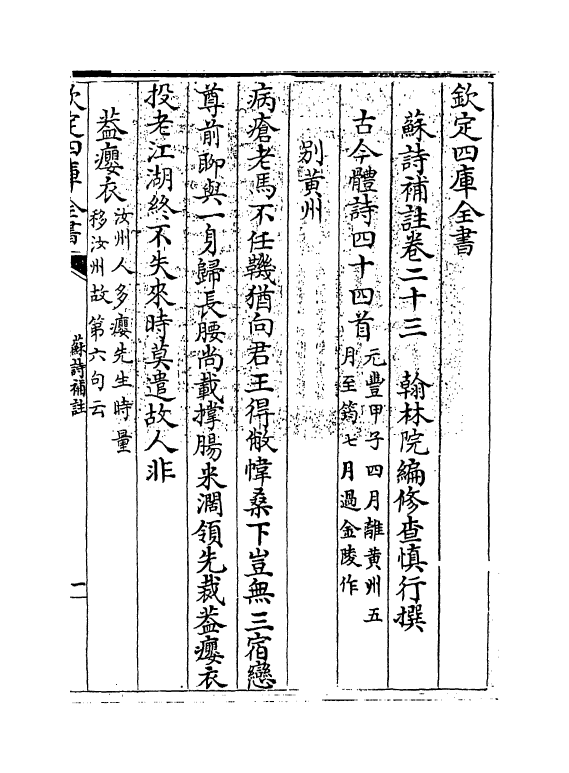 欽定四庫全書
蘇詩補註卷二十三　翰林院編修查慎行撰
古今體詩四十四首元豐甲子四月離黄州五
月至筠七月過金陵作
别黄州
病瘡老馬不任鞿猶向君王得敝幃桑下豈無三宿戀
尊前聊與一身歸長腰尚載撑腸米濶領先裁葢癭衣
投老江湖終不失來時莫遣故人非
葢癭衣汝州人多癭先生時量
移汝州故第六句云
欽定四庫全書
蘇詩補註
一